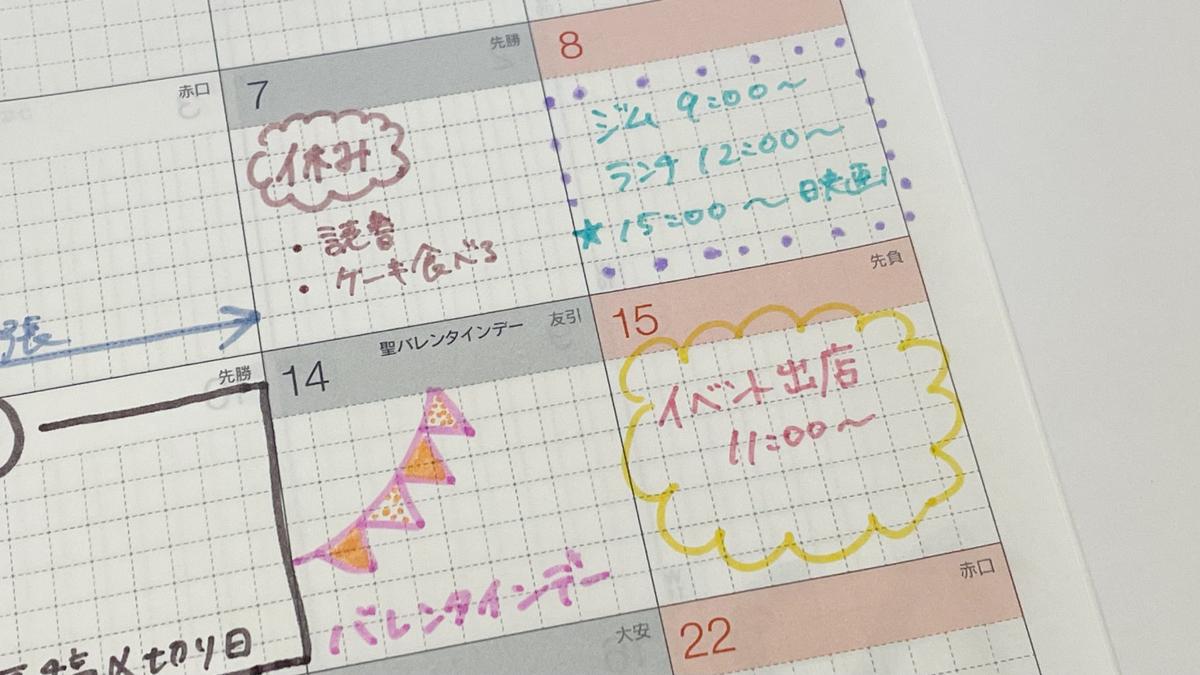 赤口
7
先勝
8
休み
・読書
・ケーキ食べる
ジム 9:00〜
ランチ 12:00〜
★ 15:00 〜 映画
張
先勝
14
聖バレンタインデー
友引
15
先負
バレンタインデー
イベント出店
11:00〜
〆切り日
大安
22
赤口